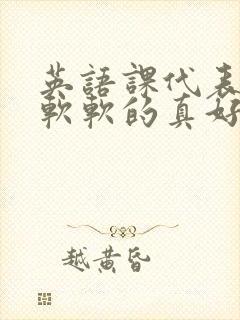 英語課代表
軟軟的真好
越黄昏